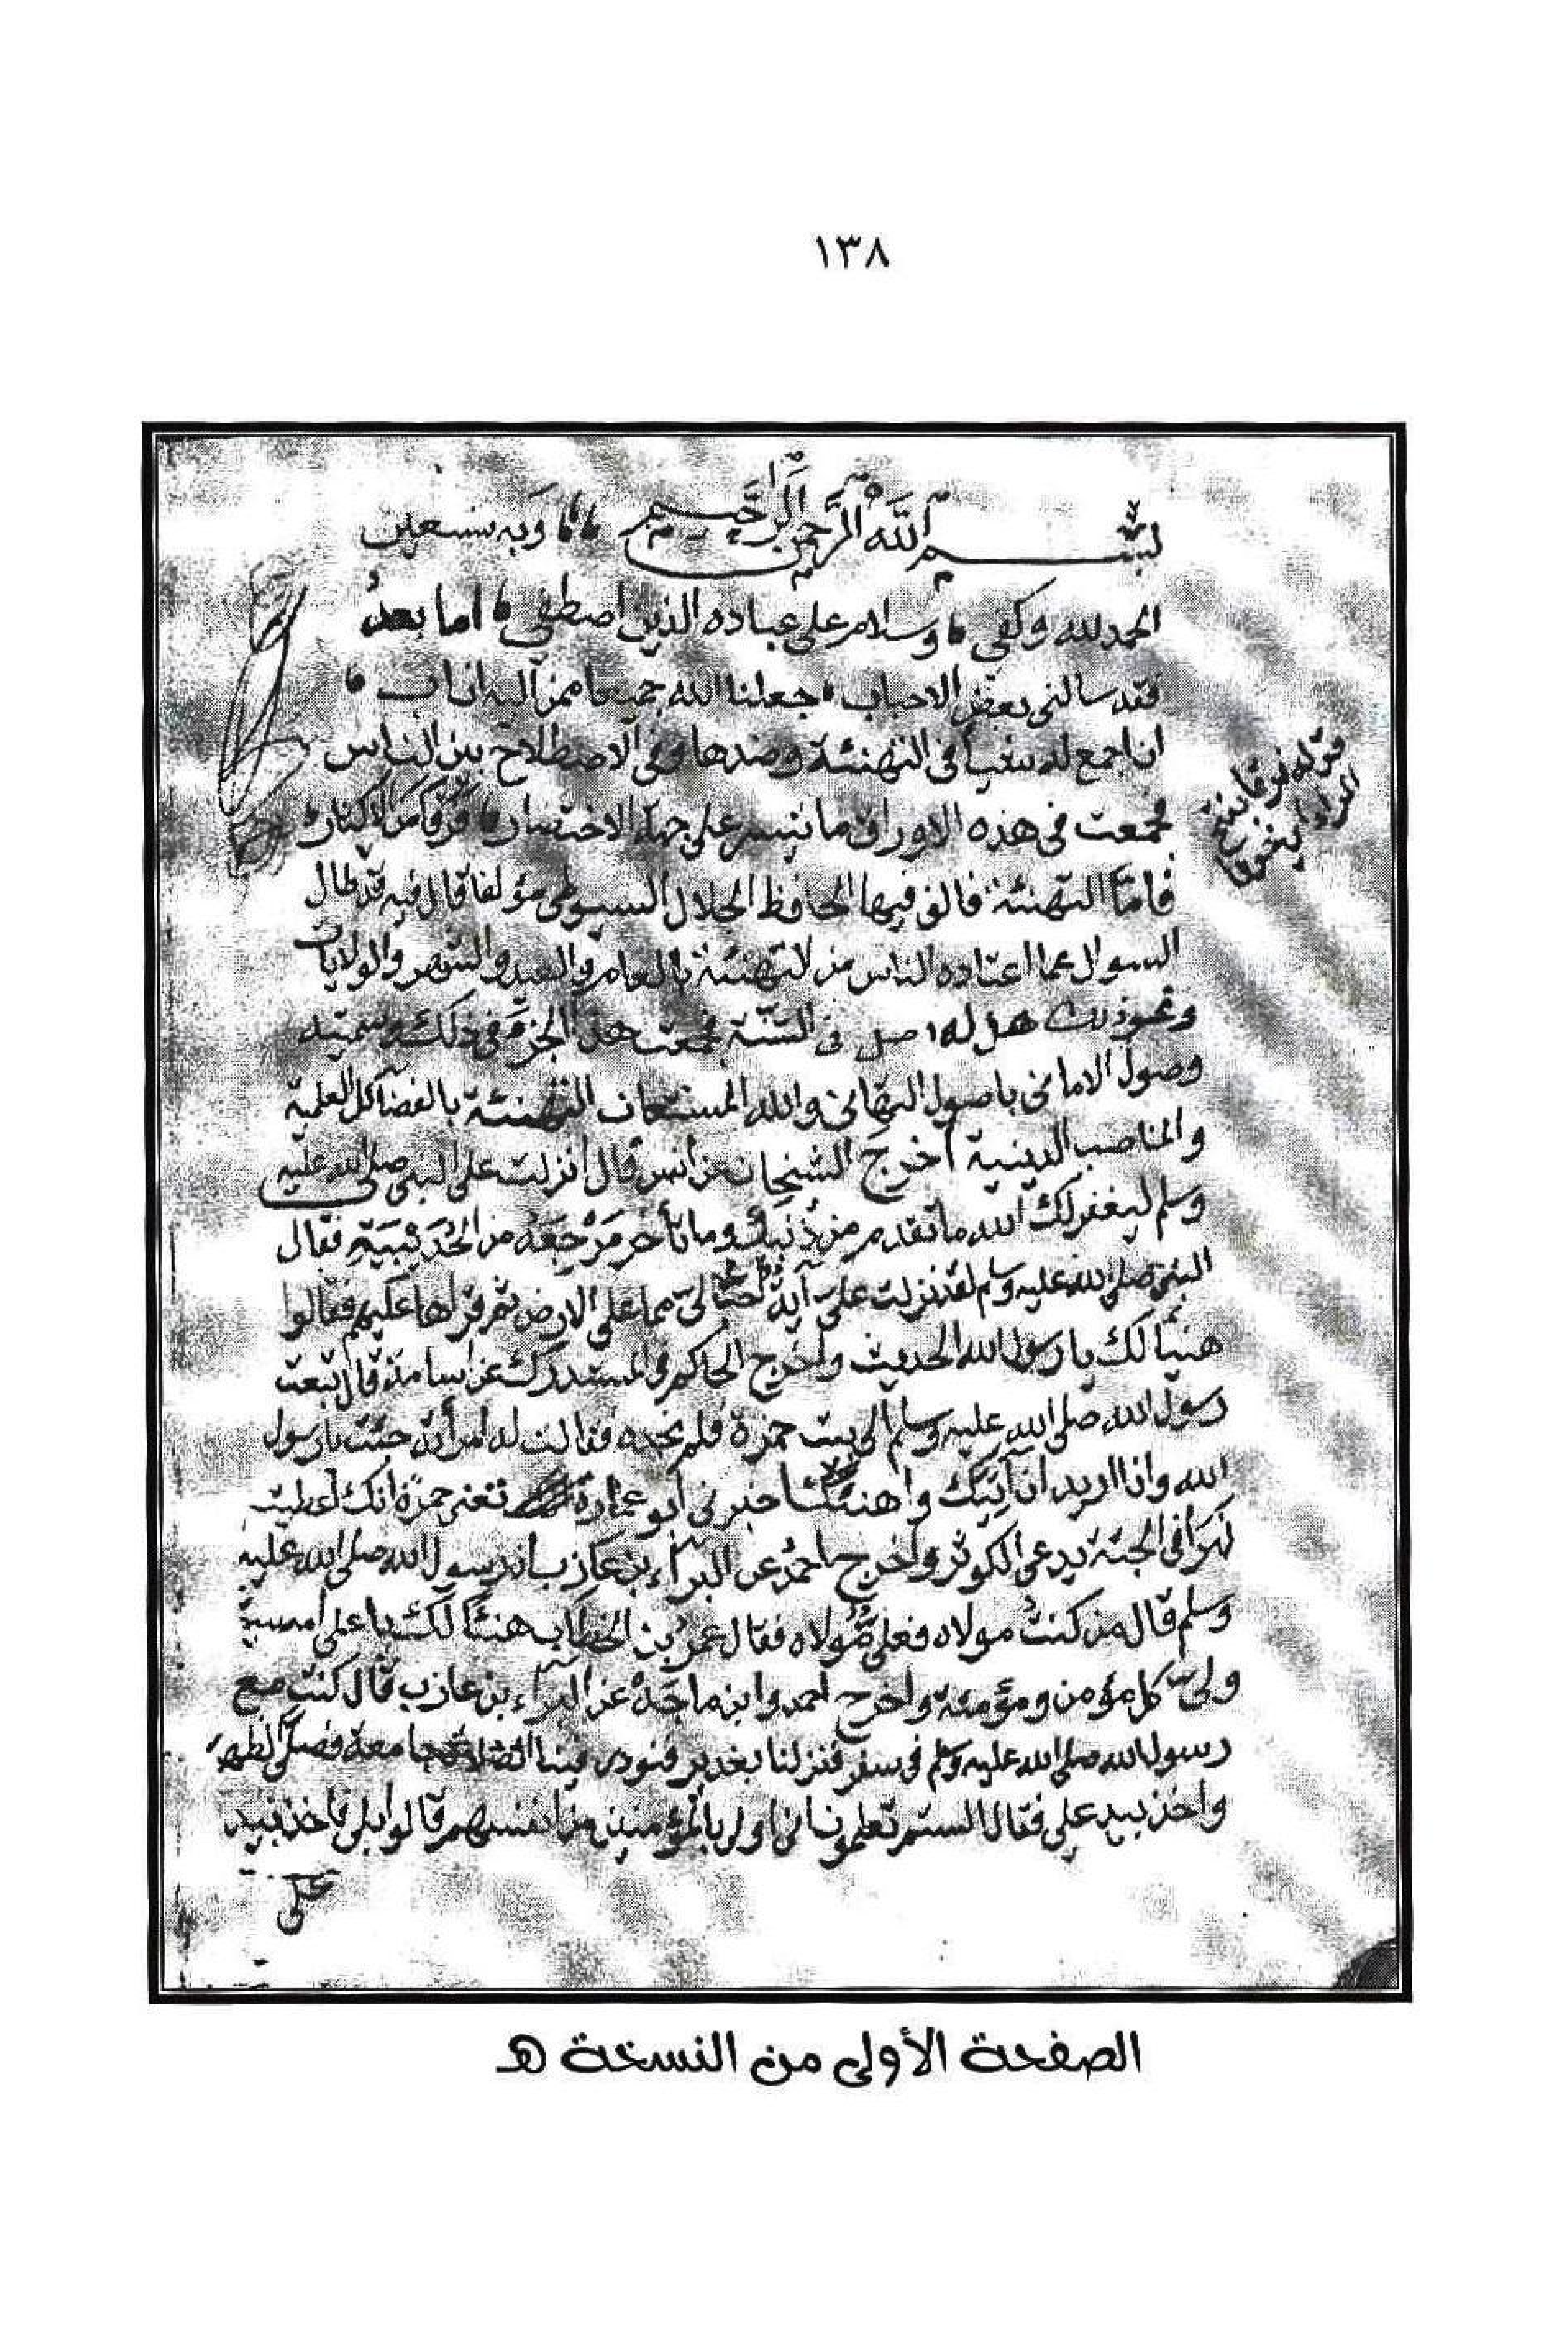 ١٣٨
بسم الله الرحمن الرحيم وبه نستعين
الحمد لله وكفى وسلام على عباده الذين اصطفى اما بعد
فقد سالنى بعض الاحباب جعلنا الله جميعا ممن اليه اناب
ان اجمع له شيا فى التهنئة وضدها وفى الاصطلاح بين الناس
فجمعت فى هذه الاوراق ما تيسر على جهة الاختصار فرقا من الاكثار
قوله فرقا
الراء
فاما التهنئة فالف فيها الحافظ الجلال السيوطى مؤلفا قال فيه قد طال
السوال عما اعتاده الناس من التهنئة بالعام والعيد والشهر والولايات
ونحو ذلك هل له اصل فى السنة فجمعت هذا الجزء فى ذلك وسميته
وصول الامانى باصول التهانى والله المستعان التهنئة بالفضائل العلمية
والمناصب الدينية أخرج الشيخان عن انس قال انزلت على النبى صلى الله عليه
وسلم ليغفر لك الله ما تقدم من ذنبك وما تأخر مَرْجِعَهُ من الحُدَيْبِيَةِ فقال
النبى صلى الله عليه وسلم لقد نزلت علىّ آية احب الىّ مما على الارض ثم قراها عليهم فقالوا
هنيأ لك يا رسول الله الحديث واخرج الحاكم فى المستدرك عن اسامة قال تبعت
رسول الله صلى الله عليه وسلم الى بيت حمزة فلم نجده فقالت له امرأته جئت يا رسول
الله وانا اريد ان آتيك واهنئك اخبرنى ابو عمارة تعنى حمزة انك اعطيت
نهرا فى الجنة يدعى الكوثر واخرج احمد عن البرآء بن عازب ان رسول الله صلى الله عليه
وسلم قال من كنت مولاه فعلىّ مولاه فقال عمر بن الخطاب هنيأ لك يا على امسيت
ولىّ كل مؤمن ومؤمنة واخرج احمد وابن ماجَهْ عن البرآء بن عازب قال كنت مع
رسول الله صلى الله عليه وسلم فى سفر فنزلنا بغدير فنودى فينا الصلاة جامعة فصلى الظهر
واخذ بيد على فقال الستم تعلمون انى اولى بالمؤمنين من انفسهم قالوا بلى فاخذ بيد
على
الصفحة الأولى من النسخة هـ